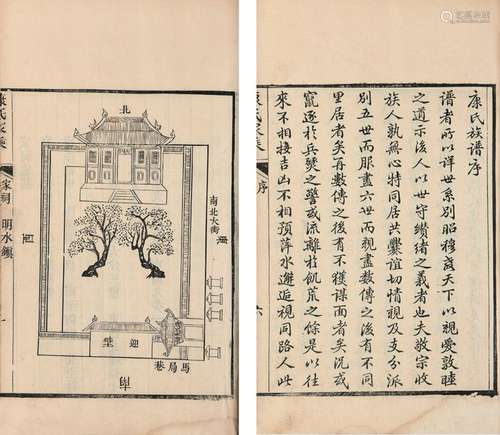 康氏族譜序
譜者所以詳世系别昭穆天下以親愛敦睦
之道示後人以世守纘緒之義者也夫敬宗收
族人孰無心特同居共爨誼切情親及支分派
别五世而服盡六世而親盡數傳之後有不同
里居者矣再數傳之後有不獲謀面者矣況或
竄逐於兵燹之警或流離於飢荒之餘是以往
來不相接吉凶不相預萍水邂逅視同路人此
康氏家乘
序
六
北
南北大街
迎壁
馬局巷
康氏家乘
家祠
明水鎮
一